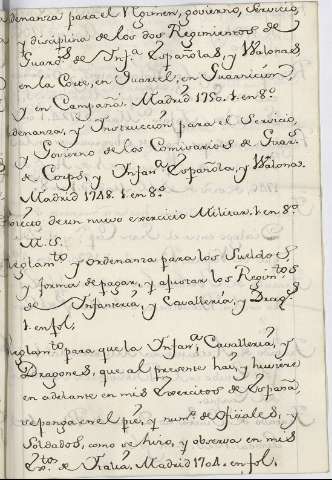 denanza para el Regimen, govierno, servicio,
y disciplina de los dos Regimientos de
Guards. de Infa. Españolas, y Walonas
en la Corte, en Quartel, en Guarnicion,
y en Campaña. Madrid 1750. 1. en 8o.
denanza, y Instruccion para el Servicio,
y Govierno de los Comisarios de Guars.
de Corps, y Infana. Española, y Walona.
Madrid 1748. 1. en 8o.
de un nuevo exercicio Militar. 1. en 8o.
M.S.
eglamto. y ordenanza para los Sueldos,
y forma de pagar, y ajustar los Regimtos.
de Infanteria, y Cavalleria, y Drags.
1. en fol.
eglamto. para que la Infana. Cavalleria, y
Dragones, que al presente hai, y huviere
en adelante en mis Exercitos de España,
se ponga en el pie, y numo. de Oficiales, y
Soldados, como se hizo, y observa en mis
Extos. de Italia. Madrid 1704. en fol.